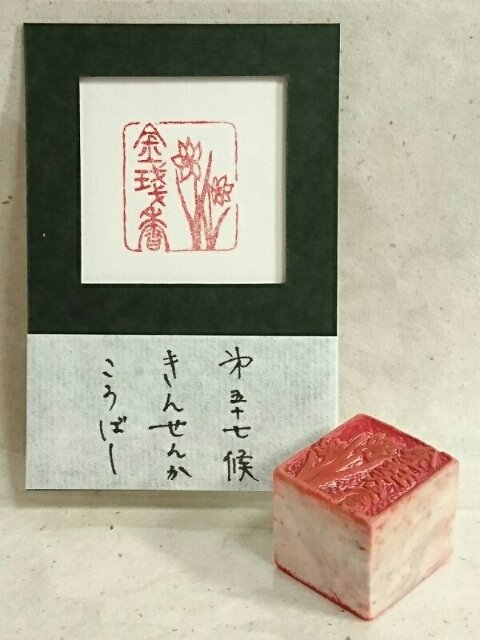 金琖香
第五十七候
きんせんか
こうばし